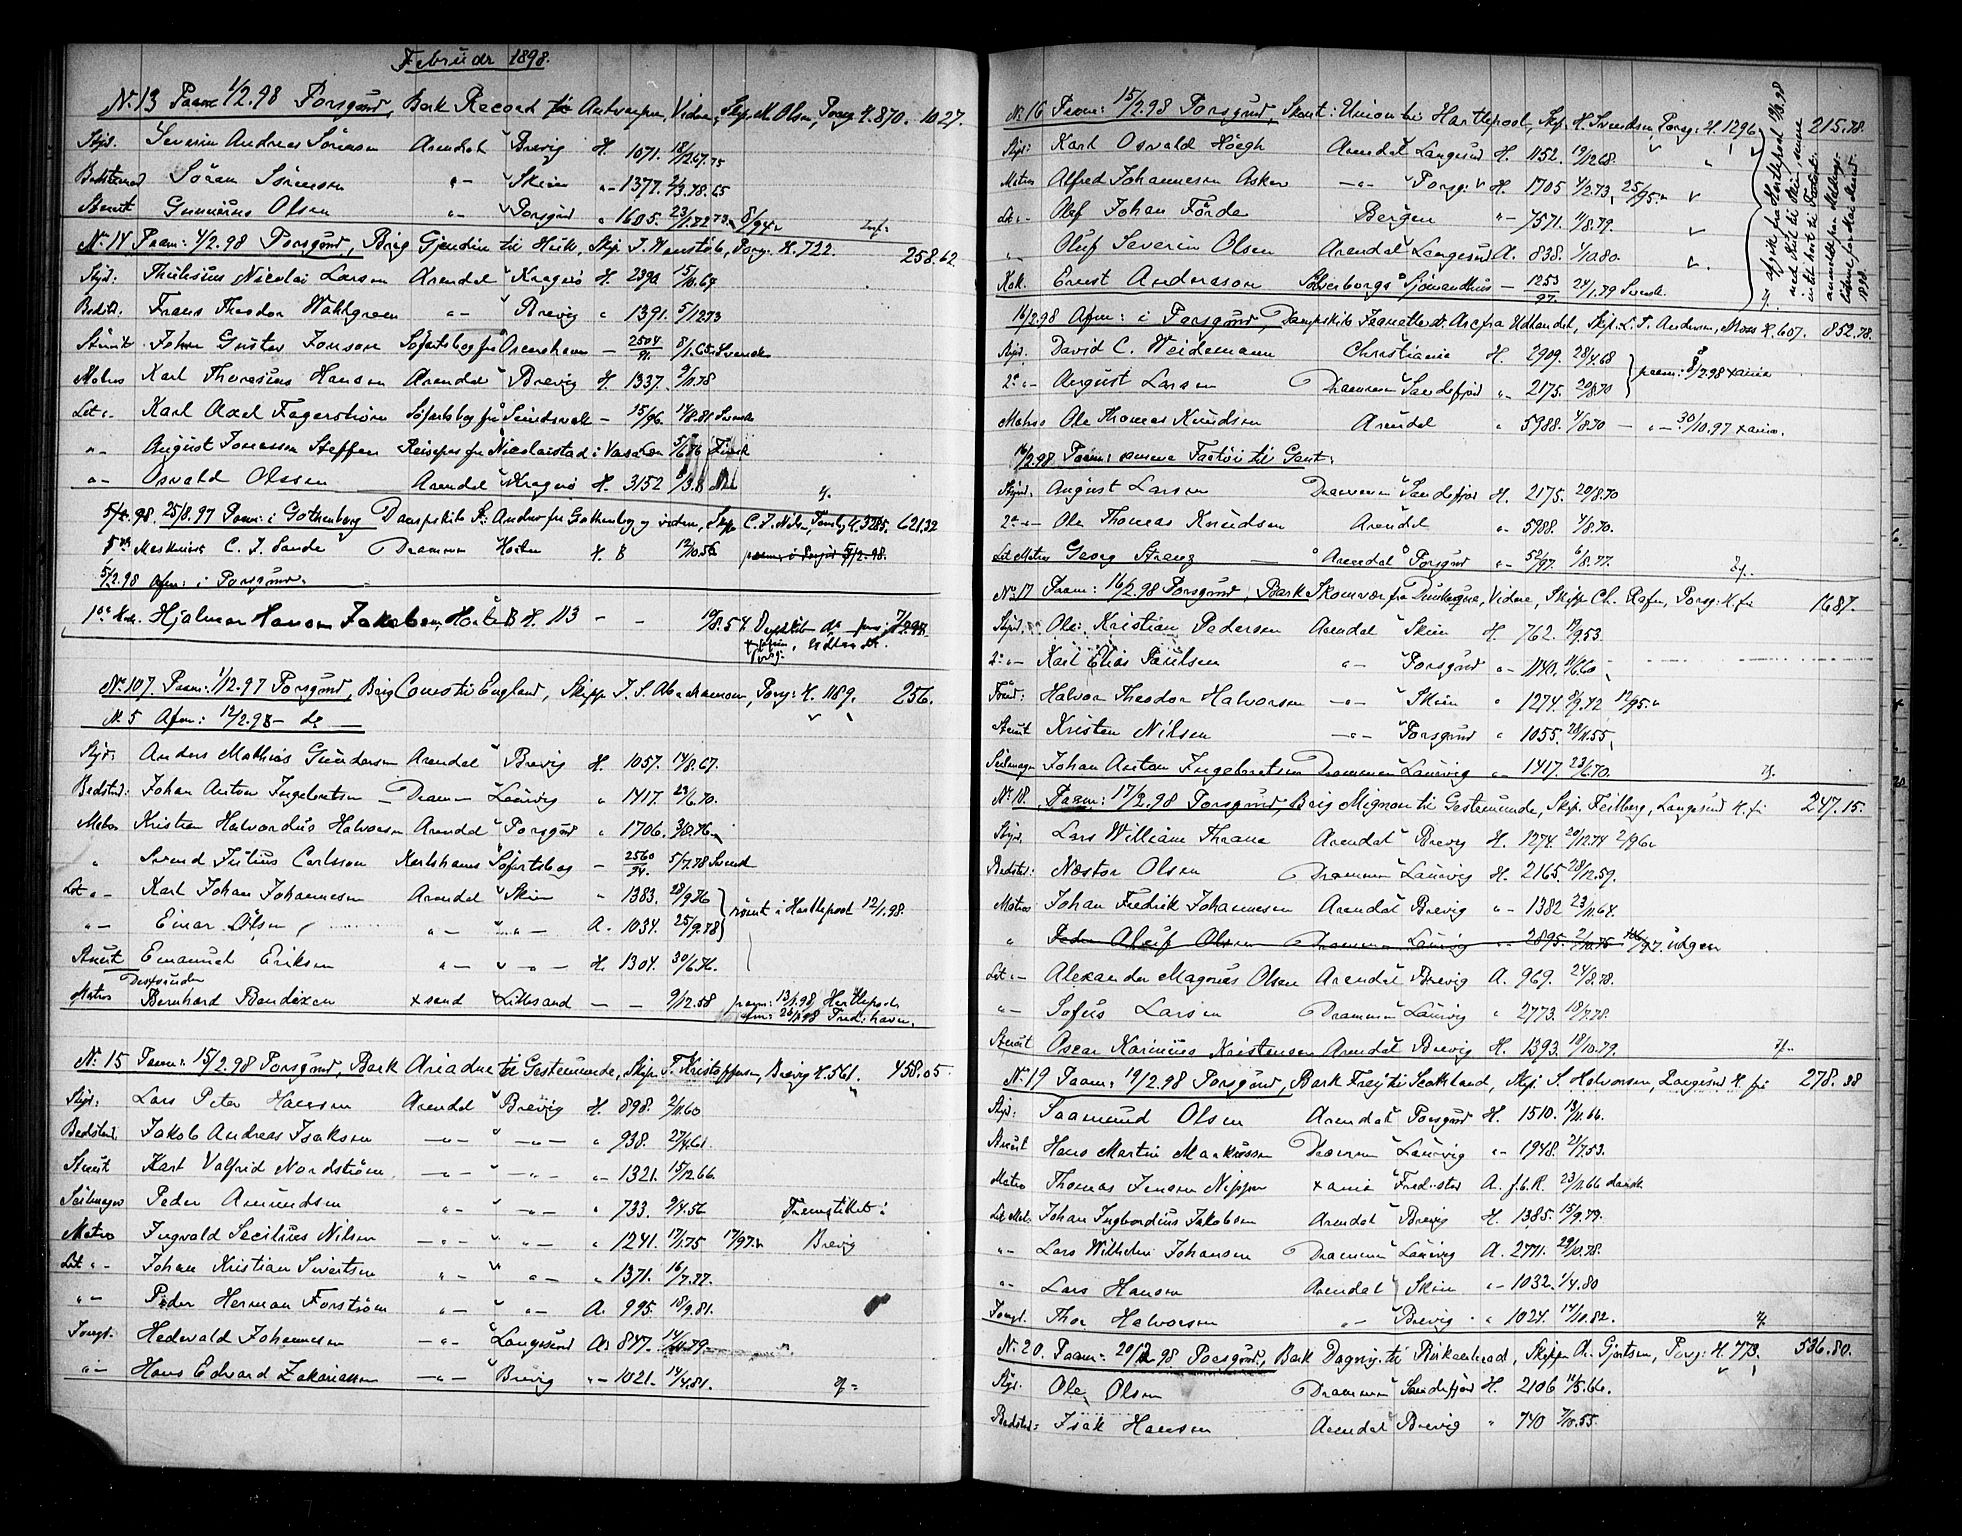 Februar 1898.
N. 13 Paam: 1/2.98 Porsgrund, Bark Record fra Antwerpen, Videre, Skip. M. Olsen, Porsg. H. 870. 1027.
Styr. Severin Andreas Sörensen Arendal " Brevig H. 1071. 18/12.67.
Bedstemad Sören Sörensen " - " Skien " - 1377. 2/3.78.
Stuert Gunnerius Olsen " - " Porsgrund " 1605. 23/1.72
N. 14 Paam: 4/2.98 Porsgrund, Brig Gjendin til Hull, Skip. Porsg. H. 722. 258.62
Styr: Thulesius Nicolai Larsen Arendal " Kragerø H. 2390 15/10.64
Bedst. Frans Theodor Wahlgreen " - " Brevig " 1391. 5/12.73
Stuert John Gustav Jonson Søfartsbog fra Oscarshavn - 2504/91. 8/1.65. Svensk
Matros Karl Thoresius Hansen Arendal " Brevig H. 1337. 9/11.78
Let " - Karl Axel Fagerström Søfartsbog fra Sundsvall - 15/96. 14/8.81 Svensk
" - August Jonasson Steffen Reisepas fra Nicolaistad i Vasa län 5/6.76 Finsk
" - Osvald Olssen Arendal " Kragerø H. 3152
25/8.97 Paam: i Gothenborg Dampskib St: Andrew fra Gothenborg og videre, Skip. C. J. Nilsen, Tønsbg. 621.32
Maskinist C. J. Sande Drammen Horten H. B 12/10.56
5/2.98 Afm: i Porsgrund.
Hjalmar Hanson Jakobsen, Horten B H. 113 - - 19/8.54
N. 107. Paam: 1/12.97 Porsgrund, Brig Como til England, Skipp. J. S. Abrahamsen, Porsg: H. 1169. 256.
N. 5 Afm: 12/2.98 - do -
Styr: Anders Mathias Gundersen Arendal " Brevig H. 1057. 14/8.67.
Bedstd: Johan Anton Ingebretsen - Drammen Laurvig " 1417. 23/6.70.
Matros Kristian Halvordius Halvorsen Arendal " Porsgrund " 1706. 3/10.76.
" Svend Julius Carlsson Karlshamns Søfartsbog - 2560/94. 5/7.78 Svensk
Let " - Karl Johan Johannesen Arendal " Skien " 1383. 28/9.76 rømt i Hartlepool 12/1.98.
" - Einar Olsen " - " " - A. 1034. 25/9.78
Stuert Emanuel Eriksen " - " " - H. 1304. 30/6.76.
Matros Bernhard Bendixen xsand Lillesand - - 9/12.58 paam: 13/1.98 Hartlepool
afm: 26/1.98 Fred:havn.
N. 15 Paam: 15/2.98 Porsgrund, Bark Ariadne til Gestemunde, Skip. T. Kristoffersen, Brevig H. 561. 458.05
Styr: Lars Peter Hansen Arendal " Brevig H. 898. 2/11.60
Bedstd. Jakob Andreas Isaksen - " - " - " - " 938. 27/4.61.
Stuert Karl Valfrid Nordström - " - " - " - " - 1321. 15/12.66.
Seilmager Peder Amundsen " - " - " - " 733. 9/4.56
Matros Ingvald Secilius Nilsen - " - " " - " 1241. 17/1.75 17/97. Brevig
Let " - Johan Kristian Sivertsen " - " " - " 1371. 16/7.77.
" - Peder Herman Forström - " - " " - A. 995. 18/9.81.
Jungt. Hedevald Johannesen - " - " Langesund A. 847. 14/11.79
" - Hans Edvard Zakariassen - " - " Brevig " - 1021. 14/4.81.
N. 16 Paam: 15/2.98 Porsgrund, Skont: Union til Hartlepool, Skip. H. Svendsen Porsg: H. 1296 215.78.
Styr: Karl Osvald Höegh Arendal Langesund H. 1152. 19/12.68.
Matros Alfred Johannesen Asker - " - " Porsg: H. 1705 4/2.73, 25/95.
Let " - Olef Johan Förde Bergen " - 7571. 11/8.79.
" Oluf Severin Olsen Arendal Langesund A. 838. 4/10.80.
Kok. Ernst Andersson Sølvesborgs Sjömandhus - 1253/97. 24/1.79 Svensk
16/2.98 Afm: i Porsgrund, Dampskib fra Udlandet, Skip. L. P. Andersen, Moss H. 607. 852.78.
Styr. David C. Weidemann Christiania H. 2909. 28/4.68
2. " - August Larsen Drammen " Sandefjord " - 2175. 20/8.70 paam: 8/2.98 xania
Matros Ole Thomas Knudsen Arendal " 5988. 4/8.70 - " - 30/10.97 xania.
16/2.98 Paam: samme Fartøi til Gent:
Styrd. August Larsen Drammen " Sandefjord H. 2175. 20/8.70
2. " - Ole Thomas Knudsen Arendal " 5988. 4/8.70.
Let Matros Georg Stranz - Arendal Porsgrund " - 52/97. 6/8.77.
N. 17 Paam: 16/2.98 Porsgrund, Bark Skomvær fra Dunkerque, Videre, Skipp. Ch. Rafen, Porsg: H. fri 1687.
Styrd. Ole Kristian Pedersen Arendal " Skien H. 762. 17/9.53.
2. " - Karl Elias Paulsen " - " Porsgrund " - 1141.
Tømd: Halvor Theodor Halvorsen - " - " Skien " 1274 2/9.72 12/95.
Stuert Kristen Nilsen - " - " Porsgrund " 1055. 28/11.55
Seilmager Johan Anton Ingebretsen Drammen Laurvig " - 1417. 23/6.70.
N. 18. Paam: 17/2.98 Porsgrund, Brig Mignon til Gestemunde, Skip. Feilberg, Langesund H. fri 247.15.
Styr. Lars William Thrane Arendal " Brevig H. 1274. 20/12.74 2/96.
Bedstd: Næstor Olsen Drammen " Laurvig H. 2165. 28/12.59.
Matros Johan Fredrik Johannesen Arendal Brevig " - 1382 23/11.64.
" Peder Oluf Olsen Drammen Laurvig " - 2895. 2/10.75 udgaar
Let " - Alexander Magnus Olsen Arendal Brevig A. 969. 24/8.78.
" - Sofus Larsen Drammen Laurvig " 2773. 18/7.78.
Stuert Oscar Karinius Kristensen Arendal Brevig H. 1393. 18/10.79.
N. 19 Paam: 19/2.98 Porsgrund, Bark Frey til Scottland, Skip. S. Halvorsen, Langesund H. fri 278.38
Styr: Saamund Olsen Arendal Porsgrund H. 1510. 13/11.66.
Stuert Hans Martin Markussen Drammen Laurvig " - 1948. 21/7.53.
Matros Thomas Jensen Nippen xania Fredrikstad A. f.b.R. 23/12.66 dansk
Let Mat. Johan Ingbordius Jakobsen Arendal Brevig H. 1385. 15/9.77.
" - Lars Wilhelm Johansen Drammen Laurvig A. 2771. 29/10.78.
" - Lars Hansen Arendal Skien " - 1032. 1/4.80
Jungt. Thor Halvorsen " - Brevig " 1024. 14/10.82.
N. 20. Paam: 20/2 98 Porsgrund, Bark Dagny til Birkenhead, Skipp. A. Gjertsen, Porsg: H. 773. 536.80.
Styr. Ole Olsen Drammen Sandefjord H. 2106 11/5.66.
Bedstd: Isak Hansen Arendal Brevig " 740 7/10.55.